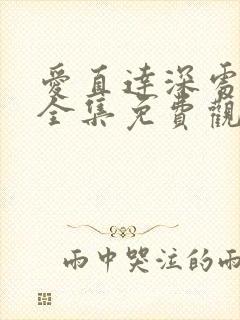 愛直達深雷
全集免費觀
雨中哭注的雨